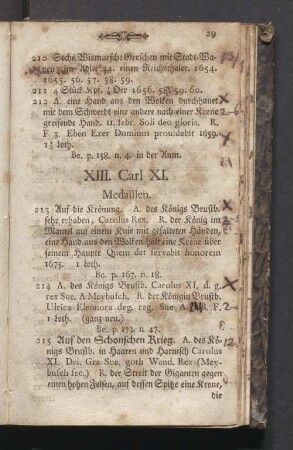 29
210 Sechs Wismarsche Groschen mit Stadt-Wa-
pen im Adler 24. einen Reichsthaler. 1654.
1655. 56. 57. 58. 59.
211 4 Stück Kpf. ¼ Oer 1656. 58. 59. 60.
212 A. eine Hand aus den Wolken durchhauet
mit dem Schwerdt eine andere nach einer Krone
greifende Hand. 11. febr. Soli deo gloria. R.
F. 3. Eben Ezer Dominus prouidebit 1659.
loth.
Be. p. 158. n. 4. in der Anm.
XIII. Carl XI.
Medaillen.
213 Auf die Krönung. A. des Königs Brustb.
sehr erhaben, Carolus Rex. R. der König im
Mantel auf einem Knie mit gefalteten Händen,
eine Hand aus den Wolken hält eine Krone über
seinem Haupte Quem dat servabit honorem
1675. 1 loth.
Be. p. 167. n. 18.
214 A. des Königs Brustb. Carolus XI, d. g.
rex Sue. A Meybusch, R. der Königin Brustb.
Ulrica Eleonora deg. reg. Sue A. M. F.
1 loth. (ganz neu.)
Be. p. 173. n. 47.
215 Auf den Schonschen Krieg. A. des Kö-
nigs Brustb. in Haaren und Harnisch Carolus
XI. Dei. Gra Sue. goth Wand. Rex (Mey-
busch fec.) R. der Streit der Giganten gegen
einen hohen Felsen, auf dessen Spitze eine Krone,
die